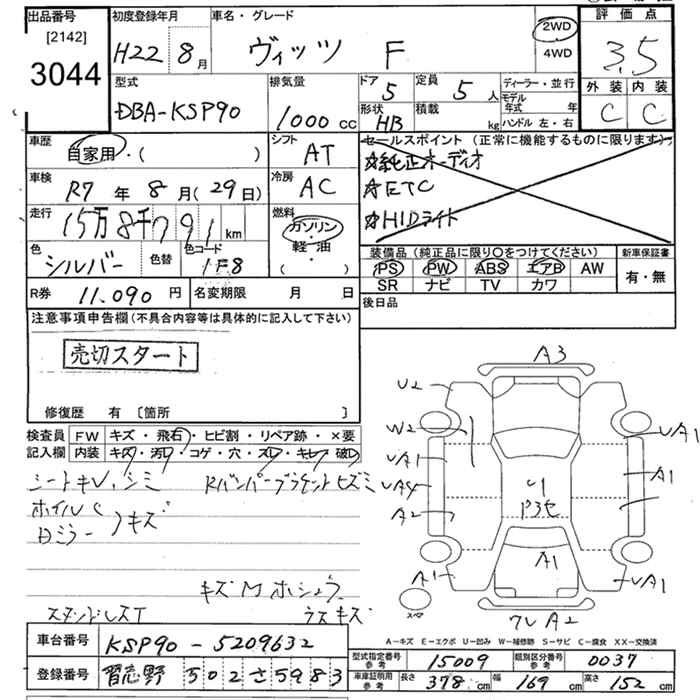 出品番号
[2142]
3044
初度登録年月
H22 8月
車名・グレード
ヴィッツ F
2WD
4WD
評価点
3.5
外装 内装
C C
型式
DBA-KSP90
排気量
1000cc
ドア 5
定員 5人
ディーラー・並行
モデル年式 年
形状 HB
積載 kg
ハンドル 左・右
車歴
自家用・( )
シフト
AT
セールスポイント (正常に機能するものに限ります)
☆純正オーディオ
☆ETC
☆HIDライト
車検
R7年8月(29日)
冷房
AC
走行
15万8千791km
燃料
ガソリン・
軽油・
色
シルバー
色替
色コード
1E8
装備品 (純正品に限り〇をつけてください)
新車保証書
PS PW ABS エアB AW
有・無
SR ナビ TV カワ
R券 11,090円
名変期限 月 日
後日品
注意事項申告欄(不具合内容等は具体的に記入して下さい)
売切スタート
修復歴 有 [箇所 ]
検査員記入欄
FW キズ・飛石・ヒビ割・リペア跡・×要
内装 キズ・汚れ・コゲ・穴・スレ・キレ・破レ
シートキレ、シミ
Rバンパーブラケットヒズミ
ホイル
Dミラー
キズ
キズM ホシュウ
スタンドレスT
ラスキズ
A3
U2
W2
UA1
UA1
UA4
A1
A2
U1
A1
A1
UA1
スペ
ワレ A2
A-キズ E-エクボ U-凹み W-補修跡 S-サビ C-腐食 XX-交換済
車台番号 KSP90-5209632
登録番号 習志野 502 さ 5983
型式指定番号 参考 15009
類別区分番号 参考 0037
車庫証明用 参考 長さ 378cm 幅 169cm 高さ 152cm